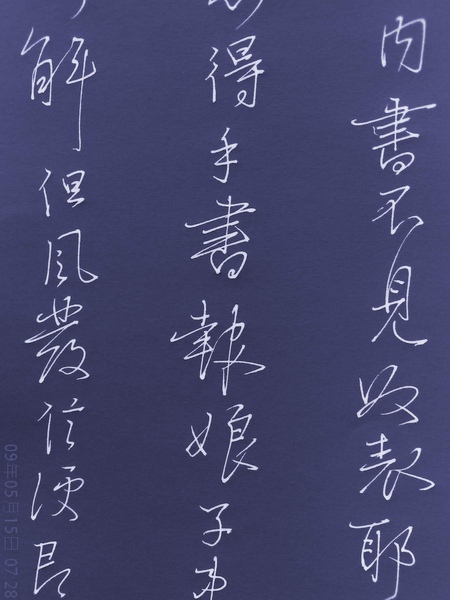 内書不見奴表耶
得手書報娘子
解但風發信便
09年05月15日 07:28